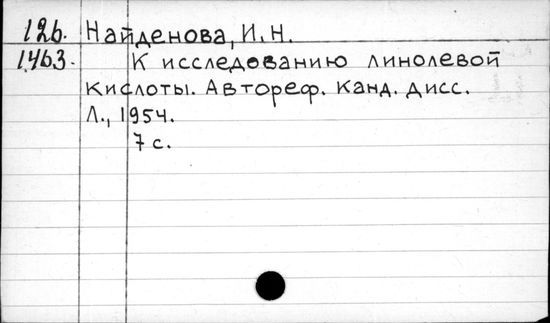 126. Найденова, И.Н.
1463. К исследованию линолевой
кислоты. Автореф. канд. дисс.
Л., 1954.
7 с.